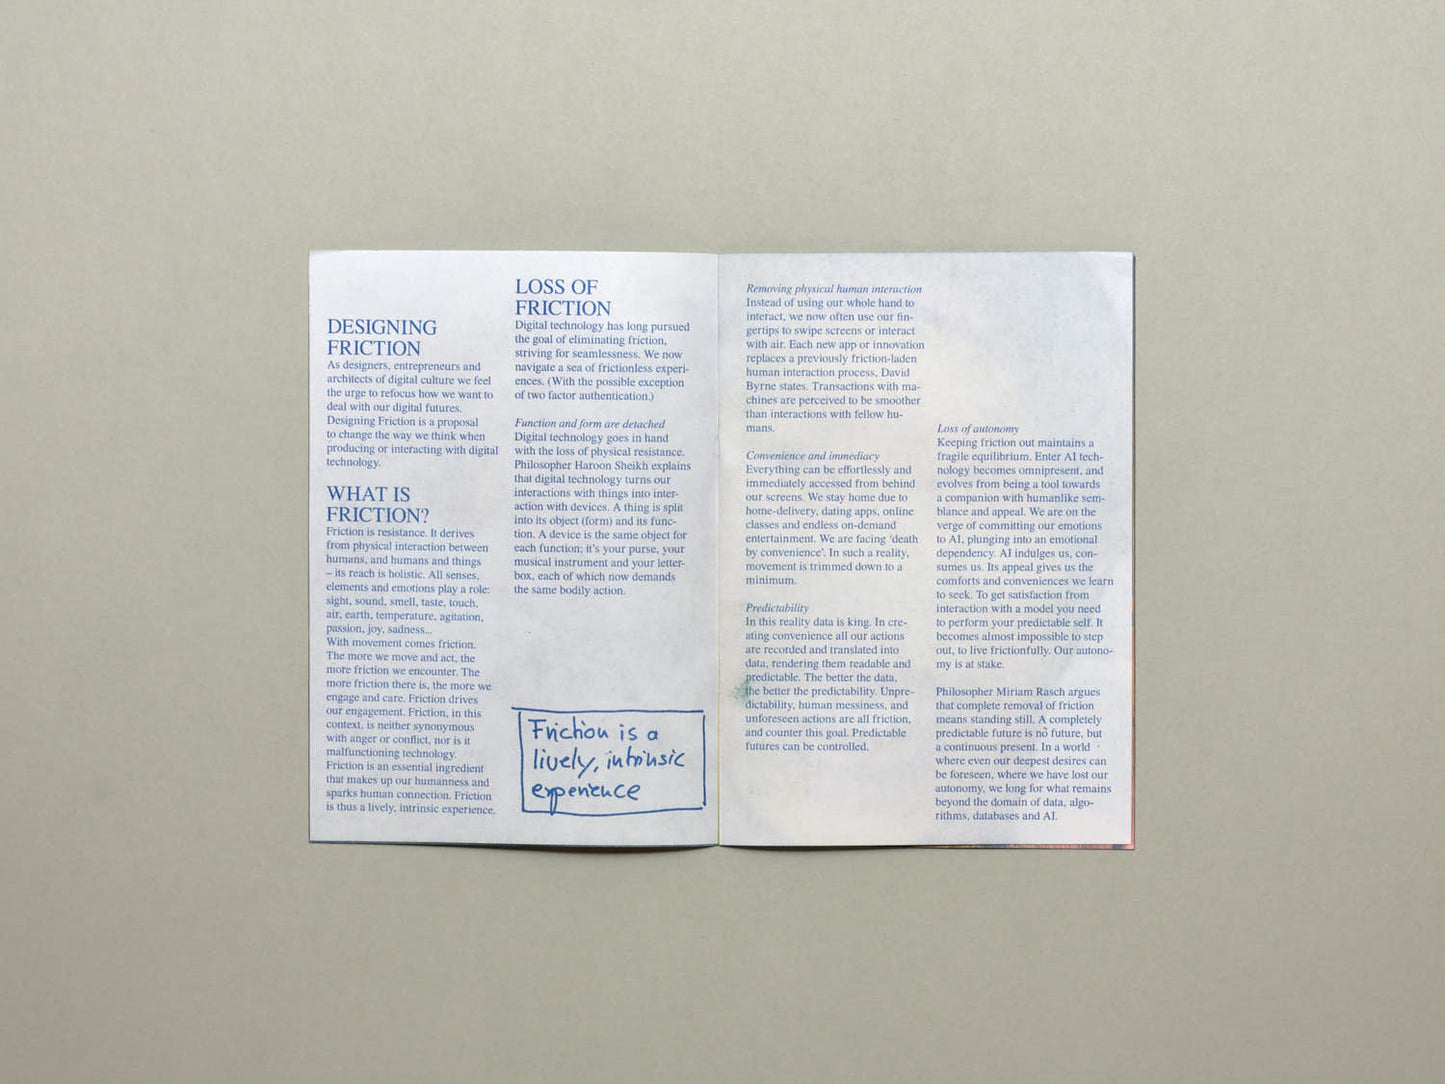 DESIGNING
FRICTION
As designers, entrepreneurs and
architects of digital culture we feel
the urge to refocus how we want to
deal with our digital futures.
Designing Friction is a proposal
to change the way we think when
producing or interacting with digital
technology.
WHAT IS
FRICTION?
Friction is resistance. It derives
from physical interaction between
humans, and humans and things
– its reach is holistic. All senses,
elements and emotions play a role:
sight, sound, smell, taste, touch,
air, earth, temperature, agitation,
passion, joy, sadness...
With movement comes friction.
The more we move and act, the
more friction we encounter. The
more friction there is, the more we
engage and care. Friction drives
our engagement. Friction, in this
context, is neither synonymous
with anger or conflict, nor is it
malfunctioning technology.
Friction is an essential ingredient
that makes up our humanness and
sparks human connection. Friction
is thus a lively, intrinsic experience.
LOSS OF
FRICTION
Digital technology has long pursued
the goal of eliminating friction,
striving for seamlessness. We now
navigate a sea of frictionless experi-
ences. (With the possible exception
of two factor authentication.)
Function and form are detached
Digital technology goes in hand
with the loss of physical resistance.
Philosopher Haroon Sheikh explains
that digital technology turns our
interactions with things into inter-
action with devices. A thing is split
into its object (form) and its func-
tion. A device is the same object for
each function; it's your purse, your
musical instrument and your letter-
box, each of which now demands
the same bodily action.
Friction is a
lively, intrinsic
experience
Removing physical human interaction
Instead of using our whole hand to
interact, we now often use our fin-
gertips to swipe screens or interact
with air. Each new app or innovation
replaces a previously friction-laden
human interaction process, David
Byrne states. Transactions with ma-
chines are perceived to be smoother
than interactions with fellow hu-
mans.
Convenience and immediacy
Everything can be effortlessly and
immediately accessed from behind
our screens. We stay home due to
home-delivery, dating apps, online
classes and endless on-demand
entertainment. We are facing 'death
by convenience'. In such a reality,
movement is trimmed down to a
minimum.
Predictability
In this reality data is king. In cre-
ating convenience all our actions
are recorded and translated into
data, rendering them readable and
predictable. The better the data,
the better the predictability. Unpre-
dictability, human messiness, and
unforeseen actions are all friction,
and counter this goal. Predictable
futures can be controlled.
Loss of autonomy
Keeping friction out maintains a
fragile equilibrium. Enter AI tech-
nology becomes omnipresent, and
evolves from being a tool towards
a companion with humanlike sem-
blance and appeal. We are on the
verge of committing our emotions
to AI, plunging into an emotional
dependency. AI indulges us, con-
sumes us. Its appeal gives us the
comforts and conveniences we learn
to seek. To get satisfaction from
interaction with a model you need
to perform your predictable self. It
becomes almost impossible to step
out, to live frictionfully. Our autono-
my is at stake.
Philosopher Miriam Rasch argues
that complete removal of friction
means standing still. A completely
predictable future is no future, but
a continuous present. In a world
where even our deepest desires can
be foreseen, where we have lost our
autonomy, we long for what remains
beyond the domain of data, algo-
rithms, databases and AI.